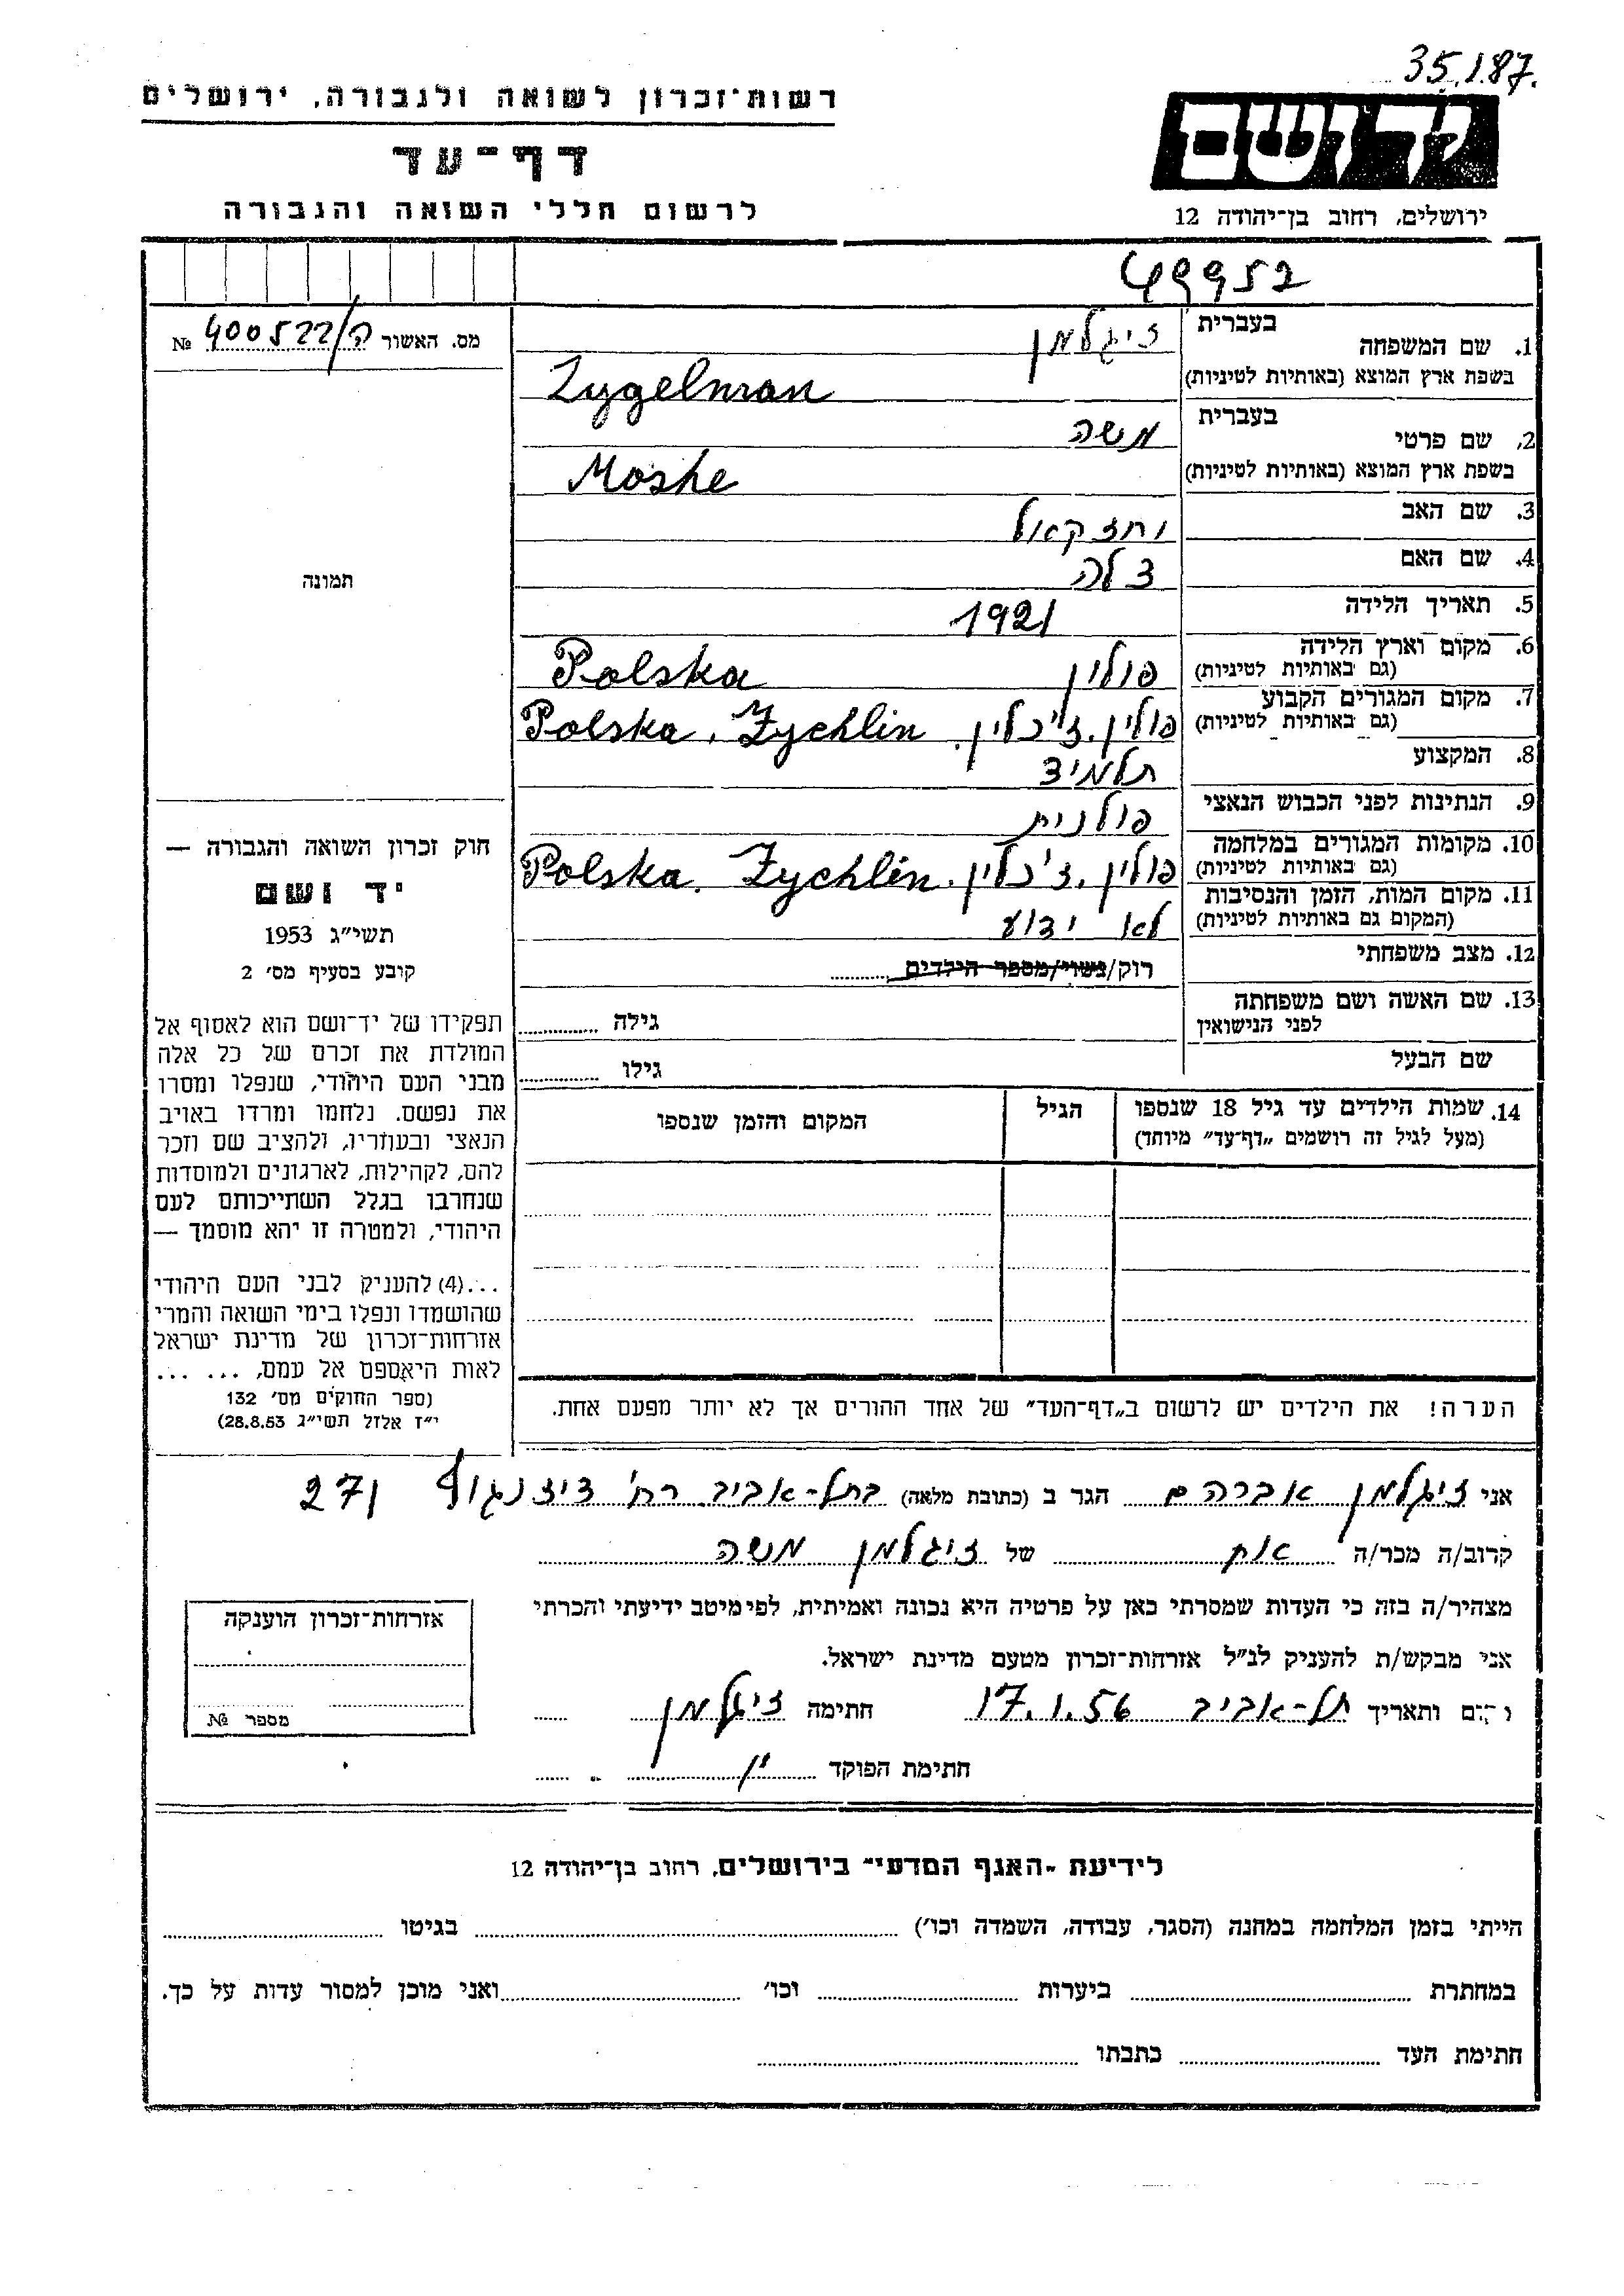 35.1.87.
רשות־זכרון לשואה ולגבורה, ירושלים
יד ושם
דף־עד
לרשום חללי השואה והגבורה
ירושלים, רחוב בן־יהודה 12
49952
מס. האשור ה/400522 №
1. שם המשפחה בעברית זיגלמן
בשפת ארץ המוצא (באותיות לטיניות) Zygelman
2. שם פרטי בעברית משה
בשפת ארץ המוצא (באותיות לטיניות) Moshe
3. שם האב יחזקאל
4. שם האם צלה
5. תאריך הלידה 1921
6. מקום וארץ הלידה (גם באותיות לטיניות) פולין Polska
7. מקום המגורים הקבוע (גם באותיות לטיניות) פולין, ז'יכלין. Polska, Zychlin
8. המקצוע תלמיד
9. הנתינות לפני הכבוש הנאצי פולנית
10. מקומות המגורים במלחמה (גם באותיות לטיניות) פולין, ז'כלין. Polska, Zychlin
11. מקום המות, הזמן והנסיבות (המקום גם באותיות לטיניות) לא ידוע
12. מצב משפחתי רוק/נשוי/מספר הילדים
13. שם האשה ושם משפחתה לפני הנישואין גילה
שם הבעל גילו
14. שמות הילדים עד גיל 18 שנספו הגיל המקום והזמן שנספו
(מעל לגיל זה רושמים „דף־עד" מיוחד)
הערה! את הילדים יש לרשום ב„דף־העד" של אחד ההורים אך לא יותר מפעם אחת.
תמונה
חוק זכרון השואה והגבורה —
יד ושם
תשי"ג 1953
קובע בסעיף מס' 2
תפקידו של יד־ושם הוא לאסוף אל
המולדת את זכרם של כל אלה
מבני העם היהודי, שנפלו ומסרו
את נפשם, נלחמו ומרדו באויב
הנאצי ובעוזריו, ולהציב שם וזכר
להם, לקהילות, לארגונים ולמוסדות
שנחרבו בגלל השתייכותם לעם
היהודי, ולמטרה זו יהא מוסמך —
...(4) להעניק לבני העם היהודי
שהושמדו ונפלו בימי השואה והמרי
אזרחות־זכרון של מדינת ישראל
לאות היאספם אל עמם, ... ...
(ספר החוקים מס' 132
י"ז אלול תשי"ג 28.8.53)
אני זיגלמן אברהם הגר ב (כתובת מלאה) בתל-אביב רח' דיזנגוף 271
קרוב/ה מכר/ה אח של זיגלמן משה
מצהיר/ה בזה כי העדות שמסרתי כאן על פרטיה היא נכונה ואמיתית, לפי מיטב ידיעתי והכרתי
אני מבקש/ת להעניק לנ"ל אזרחות־זכרון מטעם מדינת ישראל.
ותאריך תל-אביב 17.1.56 חתימה זיגלמן
חתימת הפוקד
אזרחות־זכרון הוענקה
מספר №
לידיעת „האגף המדעי" בירושלים, רחוב בן־יהודה 12
הייתי בזמן המלחמה במחנה (הסגר, עבודה, השמדה וכו') בגיטו
במחתרת ביערות וכו' ואני מוכן למסור עדות על כך.
חתימת העד כתבתו